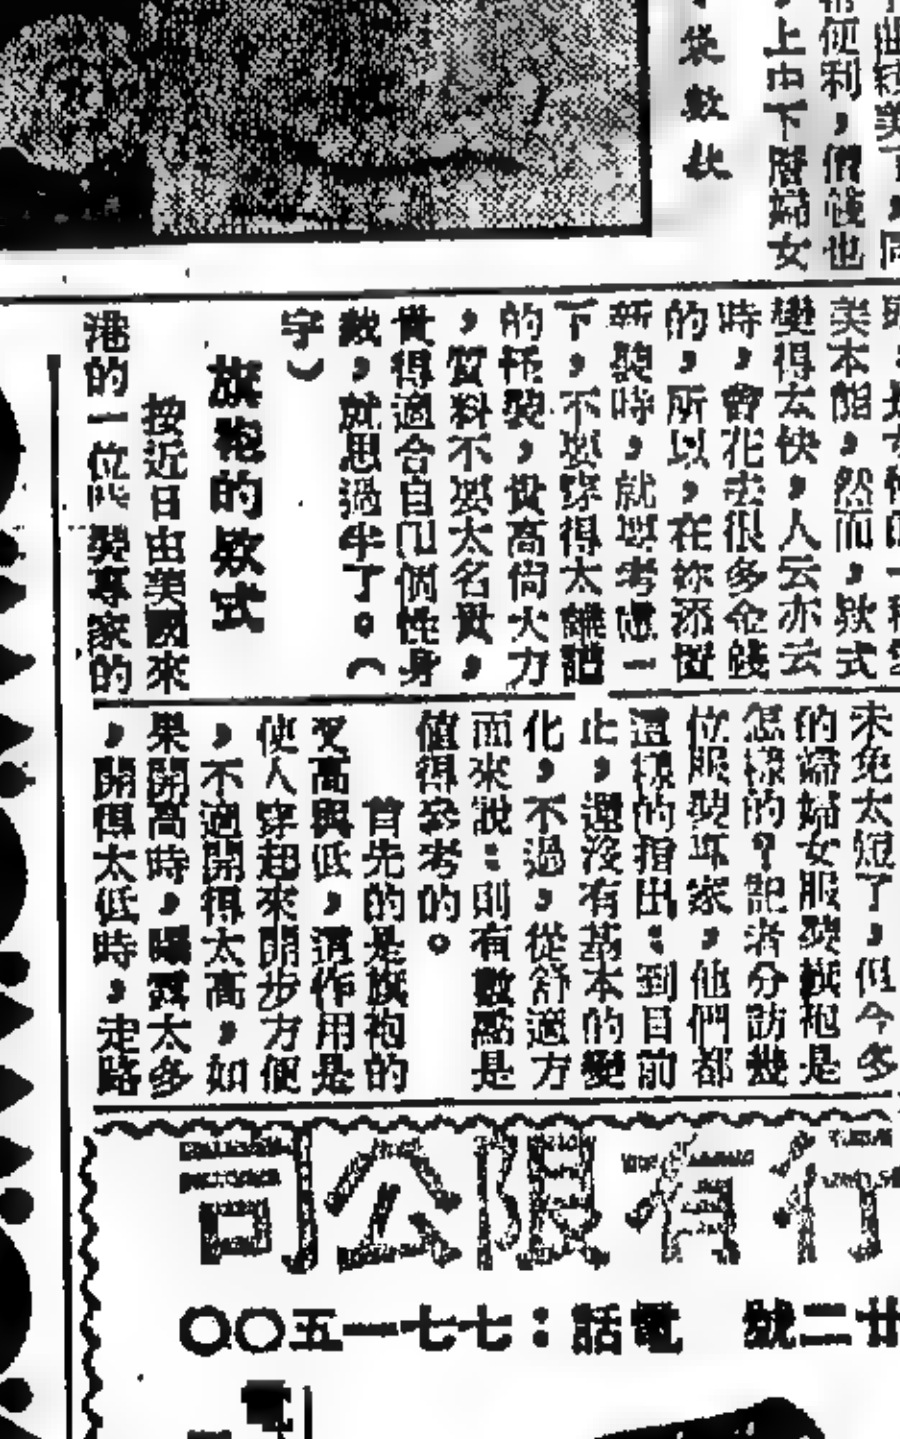 便利，價錢也
上中下層婦女
袋數款
美本能，然而，欵式
變得太快，人云亦云
時，會花去很多金錢
的，所以，在你添置
新裝時，就要考慮一
下，不要穿得太離譜
的托裝，貴高尙大方
，質料不要太名貴，
貴得適合自己個性身
數，就思過半了。（
宇）
旗袍的欵式
按近日由美國來
港的一位 裝專家的
未免太短了，但今多
的婦婦女服裝旗袍是
怎樣的？記者分訪幾
位服裝專家，他們都
這樣的指出：到目前
止，還沒有基本的變
化，不過，從舒適方
而來說：則有數點是
值得參考的。
首先的是旗袍的
叉高與低，這作用是
使人穿起來開步方便
，不過開得太高，如
果開高時，曝露太多
，開得太低時，走路
行有限公司
廿二號　電話：七七一五〇〇